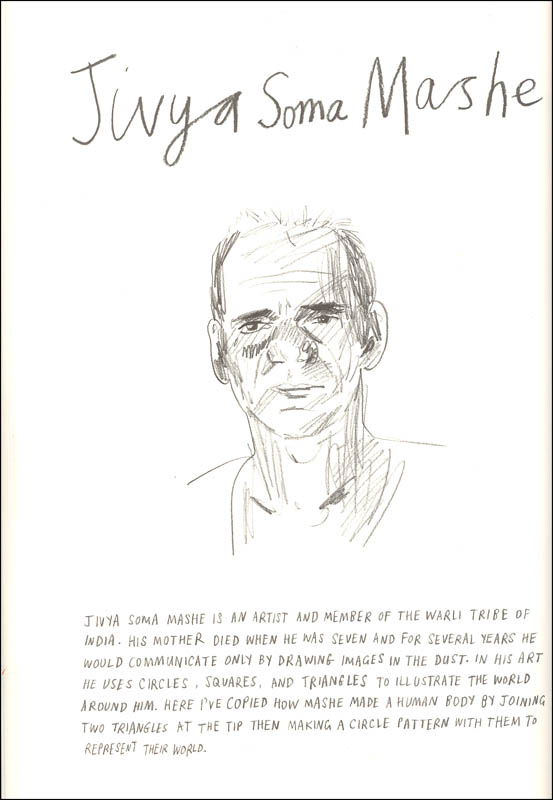 Jivya Soma Mashe
JIVYA SOMA MASHE IS AN ARTIST AND MEMBER OF THE WARLI TRIBE OF
INDIA. HIS MOTHER DIED WHEN HE WAS SEVEN AND FOR SEVERAL YEARS HE
WOULD COMMUNICATE ONLY BY DRAWING IMAGES IN THE DUST. IN HIS ART
HE USES CIRCLES, SQUARES, AND TRIANGLES TO ILLUSTRATE THE WORLD
AROUND HIM. HERE I'VE COPIED HOW MASHE MADE A HUMAN BODY BY JOINING
TWO TRIANGLES AT THE TIP THEN MAKING A CIRCLE PATTERN WITH THEM TO
REPRESENT THEIR WORLD.